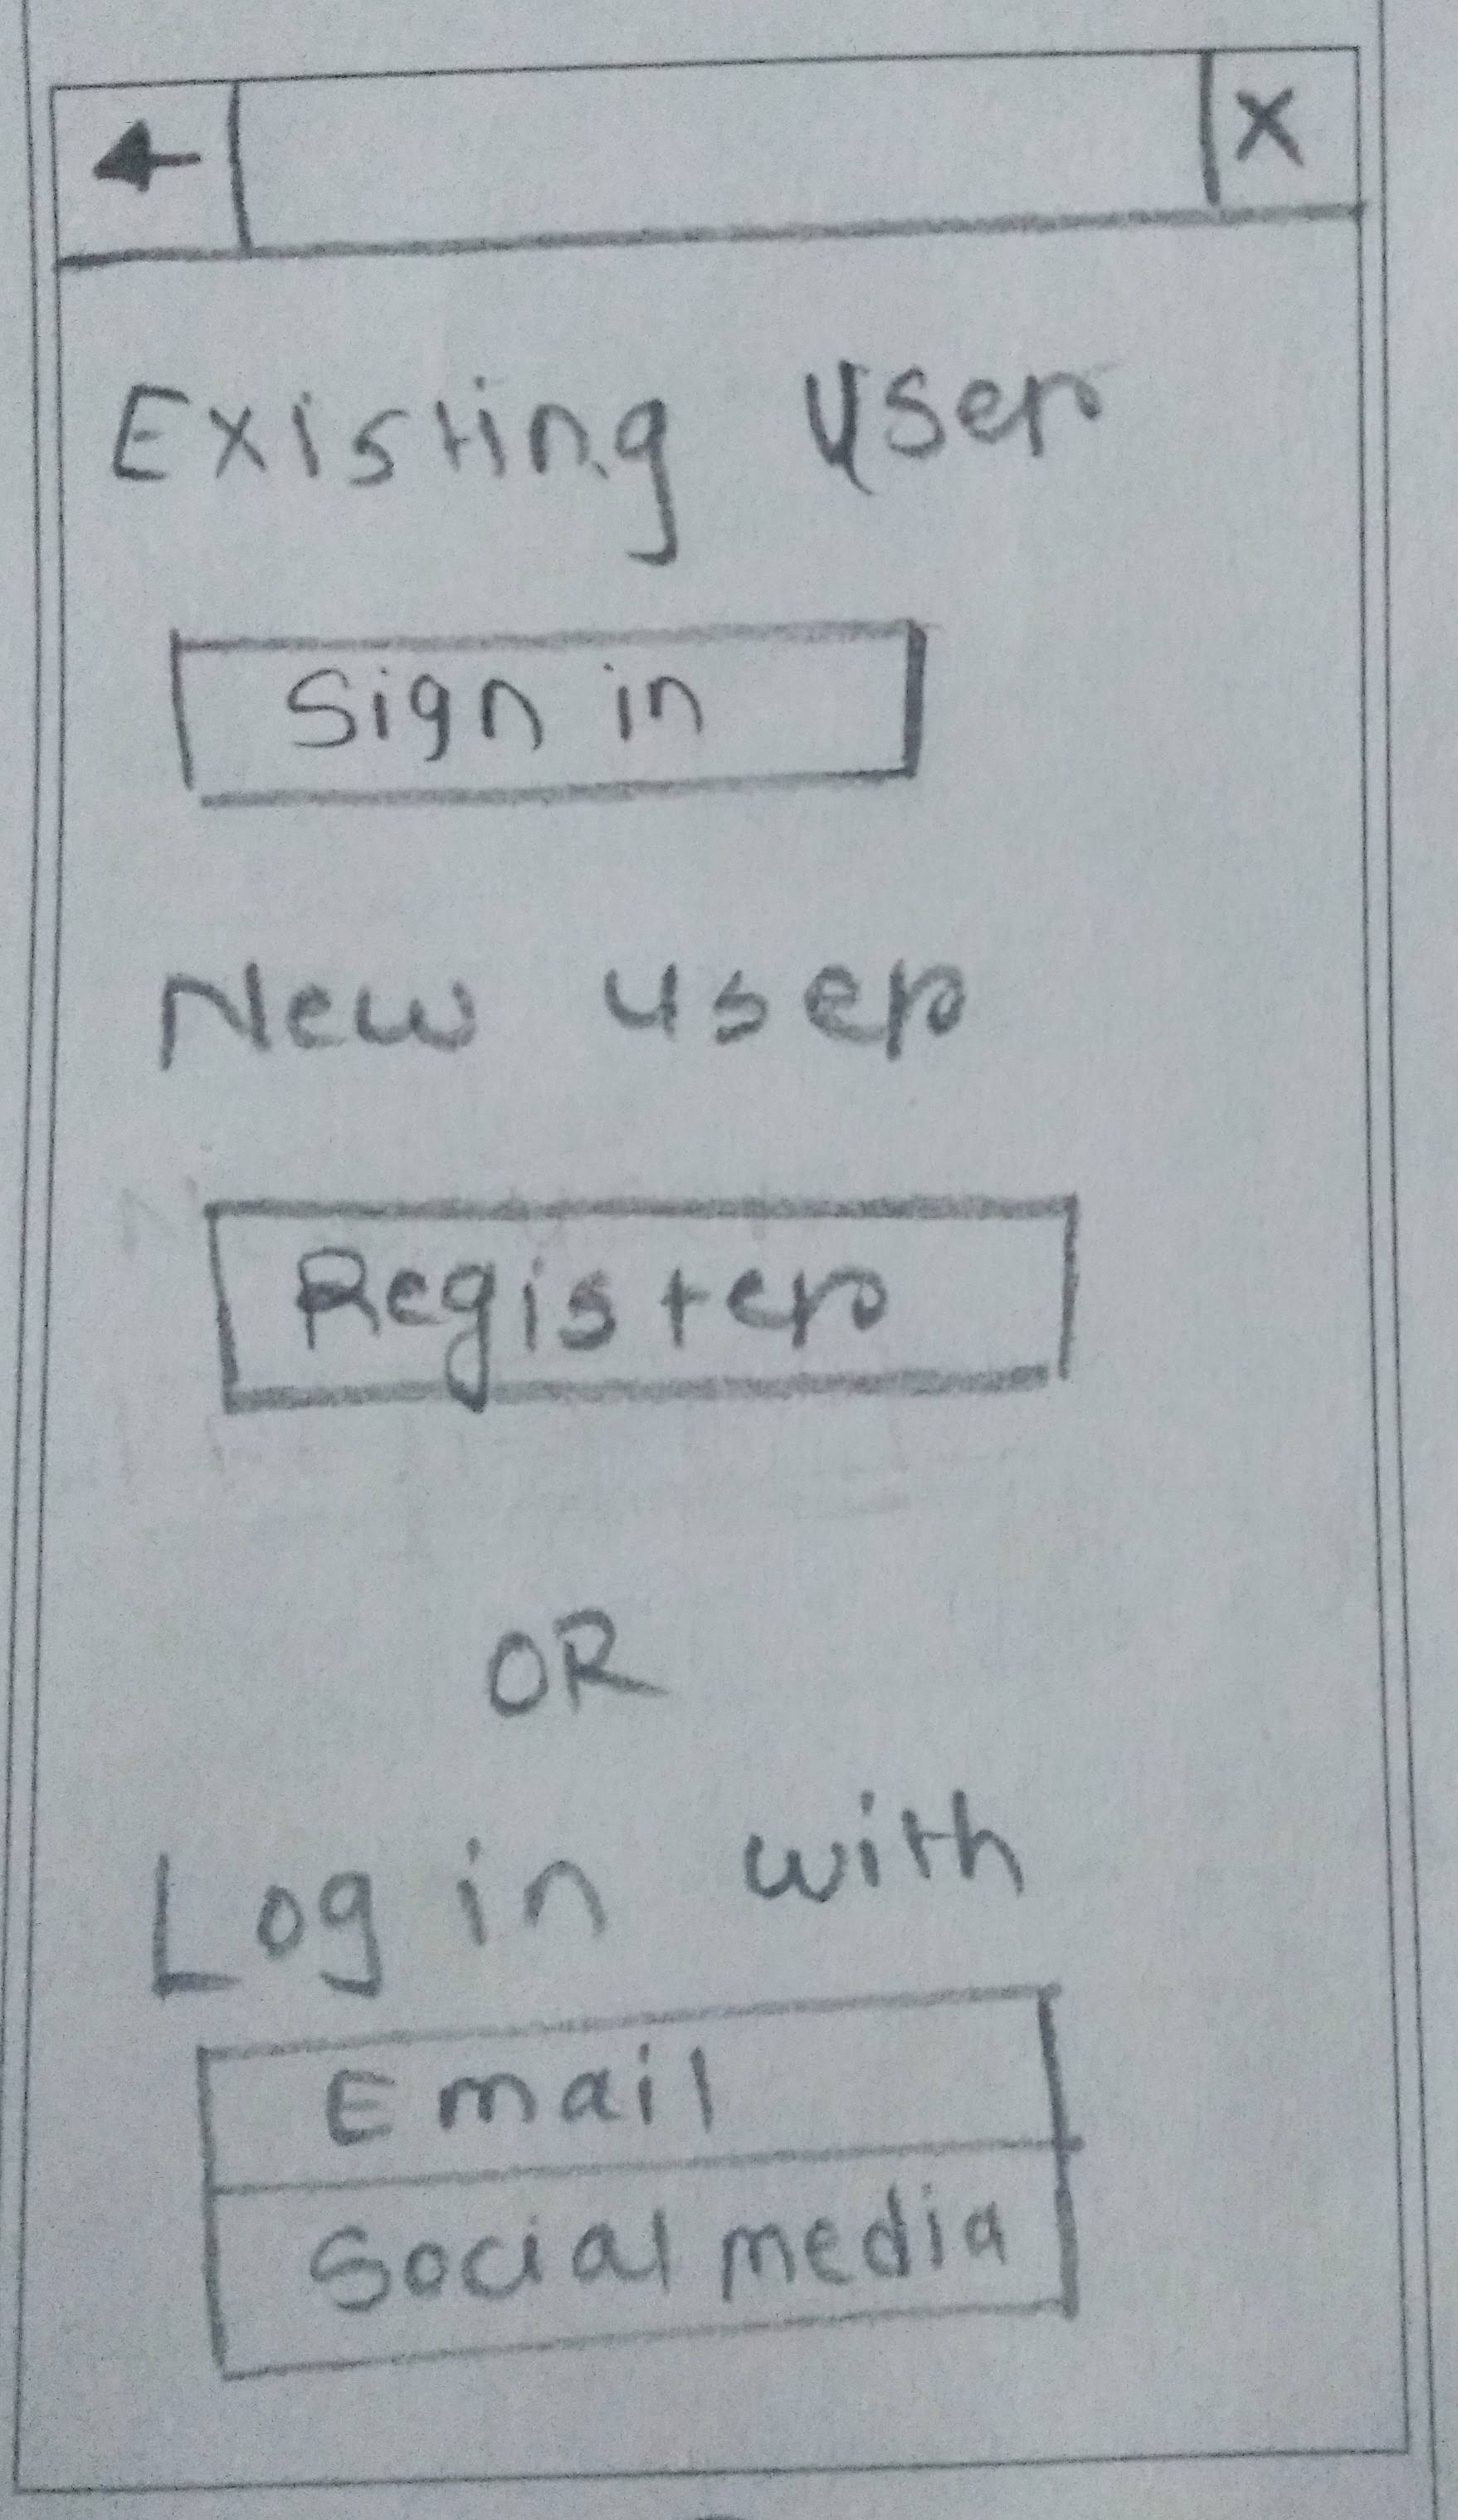 X
Existing user
Sign in
New user
Register
OR
Log in with
Email
Social media